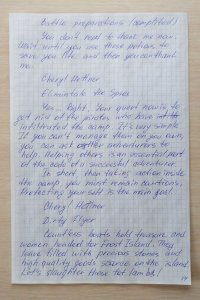 Battle preparations (completed)
You don't need to thank me now.
Wait until you use these potions to
save your life and then you can thank
me.
Cheryl Hettner
Eliminate the Spies
Yes... Right. Your quest now is to
get rid of the pirates who have
infiltrated the camp. It's very simple
If you can't manage them on your own,
you can ask other adventurers to
help. Helping others is an essential part
of the code of a successful adventurer.
In short when taking action inside
the camp you must remain cautious.
Protecting your self is the main goal.
Cheryl Hettner
Dirty Flyer
Countless boats hold treasure and
women, headed for Frost Island. They
leave filled with precious stones and
high quality goods source on the island
Let's slaughter these fat lambs!